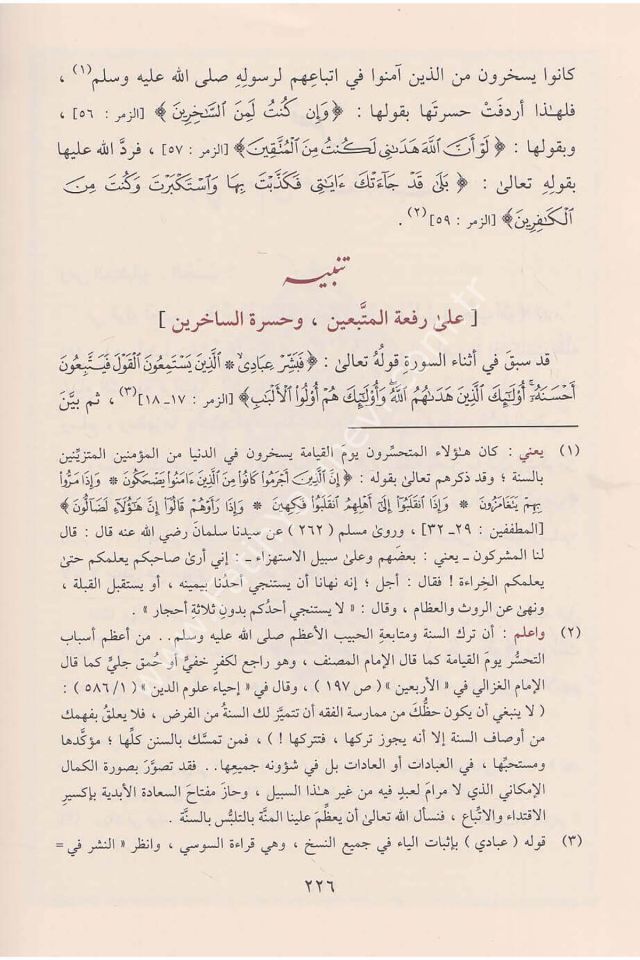 كانوا يسخرون من الذين آمنوا في اتباعهم لرسولِهِ صلى الله عليه وسلم(١) ،
فلهٰذا أردفَتْ حسرتَها بقولها : ﴿ وَإِن كُنتُ لَمِنَ السَّٰخِرِينَ ﴾ [الزمر : ٥٦] ،
وبقولها : ﴿ لَوْ أَنَّ اللَّهَ هَدَىٰنِى لَكُنتُ مِنَ الْمُتَّقِينَ﴾ [الزمر : ٥٧] ، فردَّ الله عليها
بقولِهِ تعالىٰ : ﴿ بَلَىٰ قَدْ جَآءَتْكَ ءَايَٰتِى فَكَذَّبْتَ بِهَا وَاسْتَكْبَرْتَ وَكُنتَ مِنَ
الْكَٰفِرِينَ﴾ [الزمر : ٥٩](٢) .
تنبيه
[ علىٰ رفعة المتَّبعين ، وحسرة الساخرين ]
قد سبقَ في أثناء السورةِ قولُهُ تعالىٰ : ﴿ فَبَشِّرْ عِبَادِىَ * الَّذِينَ يَسْتَمِعُونَ الْقَوْلَ فَيَتَّبِعُونَ
أَحْسَنَهُۥٓ أُوْلَٰٓئِكَ الَّذِينَ هَدَىٰهُمُ اللَّهُ وَأُوْلَٰٓئِكَ هُمْ أُوْلُوا الْأَلْبَٰبِ﴾ [الزمر : ١٧-١٨](٣) ، ثم بيَّنَ
(١) يعني : كان هـٰؤلاء المتحسِّرون يومَ القيامة يسخرون في الدنيا من المؤمنين المتزيِّنين
بالسنة ؛ وقد ذكرهم تعالىٰ بقوله : ﴿ إِنَّ الَّذِينَ أَجْرَمُوا كَانُوا مِنَ الَّذِينَ ءَامَنُوا يَضْحَكُونَ * وَإِذَا مَرُّوا
بِهِمْ يَتَغَامَزُونَ * وَإِذَا انقَلَبُوا إِلَىٰٓ أَهْلِهِمُ انقَلَبُوا فَكِهِينَ * وَإِذَا رَأَوْهُمْ قَالُوٓا إِنَّ هَٰٓؤُلَآءِ لَضَآلُّونَ ﴾
[المطففين : ٢٩-٣٢] ، وروىٰ مسلم ( ٢٦٢ ) عن سيدنا سلمانَ رضي الله عنه قال : قال
لنا المشركون ـ يعني : بعضهم وعلىٰ سبيل الاستهزاء ـ : إني أرىٰ صاحبكم يعلمكم حتىٰ
يعلمكم الخِراءة ! فقال : أجل ؛ إنه نهانا أن يستنجي أحدُنا بيمينه ، أو يستقبل القبلة ،
ونهىٰ عن الروث والعظام ، وقال : « لا يستنجي أحدُكم بدونِ ثلاثة أحجار » .
(٢) واعلم : أن ترك السنة ومتابعةِ الحبيب الأعظم صلى الله عليه وسلم.. من أعظم أسباب
التحسُّر يومَ القيامة كما قال الإمام المصنف ، وهو راجع لكفرٍ خفيٍّ أو حُمق جليٍّ كما قال
الإمام الغزالي في « الأربعين » ( ص ١٩٧ ) ، وقال في « إحياء علوم الدين » ( ١/ ٥٨٦ ) :
( لا ينبغي أن يكون حظُّك من ممارسة الفقه أن تتميَّز لك السنةُ من الفرض ، فلا يعلقُ بفهمك
من أوصاف السنة إلا أنه يجوز تركها ، فتتركها ! ) ، فمن تمسَّك بالسنن كلِّها ؛ مؤكَّدها
ومستحبِّها ، في العبادات أو العادات بل في شؤونه جميعِها.. فقد تصوَّرَ بصورة الكمال
الإمكاني الذي لا مرامَ لعبدٍ فيه من غير هـٰذا السبيل ، وحازَ مفتاحَ السعادة الأبدية بإكسيرِ
الاقتداء والاتِّباع ، فنسأل الله تعالىٰ أن يعظِّمَ علينا المنَّة بالتلبُّس بالسنَّة .
(٣) قوله ( عبادي ) بإثبات الياء في جميع النسخ ، وهي قراءة السوسي ، وانظر « النشر في =
٢٢٦